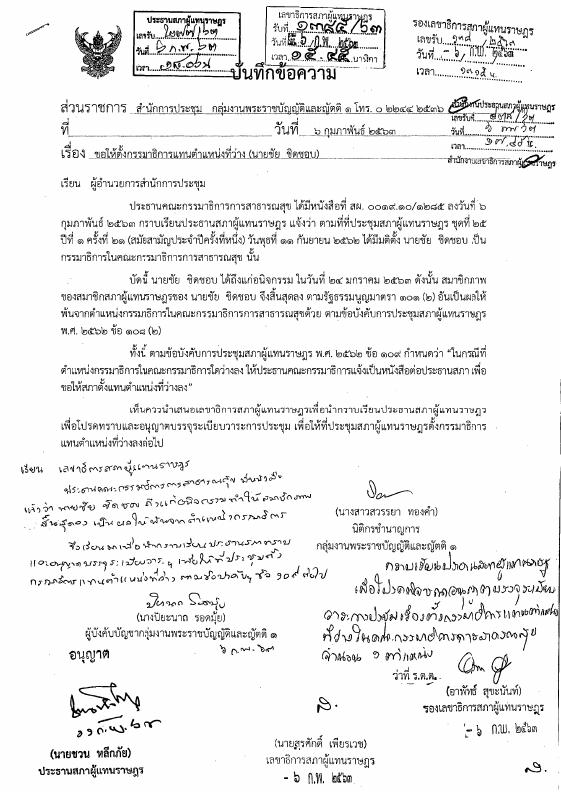 ประธานสภาผู้แทนราษฎร
เลขรับ
วันที่ ๖ ก.พ. ๖๓
เวลา
เลขาธิการสภาผู้แทนราษฎร
เลขรับ ๑๓๙๕/๖๓
วันที่ ๖ ก.พ. ๒๕๖๓
เวลา ๑๕.๔๕ นาฬิกา
รองเลขาธิการสภาผู้แทนราษฎร
เลขรับ
วันที่ ก.พ. ๒๕๖๓
เวลา
บันทึกข้อความ
ส่วนราชการ สำนักการประชุม กลุ่มงานพระราชบัญญัติและญัตติ ๑ โทร. ๐ ๒๒๔๔ ๒๕๓๖
ที่ วันที่ ๖ กุมภาพันธ์ ๒๕๖๓
เรื่อง ขอให้ตั้งกรรมาธิการแทนตำแหน่งที่ว่าง (นายชัย ชิดชอบ)
เลขรับที่
วันที่
เวลา
สำนักงานเลขาธิการสภาผู้แทนราษฎร
เรียน ผู้อำนวยการสำนักการประชุม
ประธานคณะกรรมาธิการการสาธารณสุข ได้มีหนังสือที่ สผ. ๐๐๑๙.๑๐/๑๒๘๕ ลงวันที่ ๖
กุมภาพันธ์ ๒๕๖๓ กราบเรียนประธานสภาผู้แทนราษฎร แจ้งว่า ตามที่ที่ประชุมสภาผู้แทนราษฎร ชุดที่ ๒๕
ปีที่ ๑ ครั้งที่ ๒๑ (สมัยสามัญประจำปีครั้งที่หนึ่ง) วันพุธที่ ๑๑ กันยายน ๒๕๖๒ ได้มีมติตั้ง นายชัย ชิดชอบ เป็น
กรรมาธิการในคณะกรรมาธิการการสาธารณสุข นั้น
บัดนี้ นายชัย ชิดชอบ ได้ถึงแก่อนิจกรรม ในวันที่ ๒๔ มกราคม ๒๕๖๓ ดังนั้น สมาชิกภาพ
ของสมาชิกสภาผู้แทนราษฎรของ นายชัย ชิดชอบ จึงสิ้นสุดลง ตามรัฐธรรมนูญมาตรา ๑๐๑ (๒) อันเป็นผลให้
พ้นจากตำแหน่งกรรมาธิการในคณะกรรมาธิการการสาธารณสุขด้วย ตามข้อบังคับการประชุมสภาผู้แทนราษฎร
พ.ศ. ๒๕๖๒ ข้อ ๑๐๘ (๒)
ทั้งนี้ ตามข้อบังคับการประชุมสภาผู้แทนราษฎร พ.ศ. ๒๕๖๒ ข้อ ๑๐๙ กำหนดว่า "ในกรณีที่
ตำแหน่งกรรมาธิการในคณะกรรมาธิการใดว่างลง ให้ประธานคณะกรรมาธิการแจ้งเป็นหนังสือต่อประธานสภา เพื่อ
ขอให้สภาตั้งแทนตำแหน่งที่ว่างลง"
เห็นควรนำเสนอเลขาธิการสภาผู้แทนราษฎรเพื่อนำกราบเรียนประธานสภาผู้แทนราษฎร
เพื่อโปรดทราบและอนุญาตบรรจุระเบียบวาระการประชุม เพื่อให้ที่ประชุมสภาผู้แทนราษฎรตั้งกรรมาธิการ
แทนตำแหน่งที่ว่างลงต่อไป
เรียน เลขาธิการสภาผู้แทนราษฎร
ประธานคณะกรรมาธิการการสาธารณสุข มีหนังสือ
แจ้งว่า นายชัย ชิดชอบ ถึงแก่อนิจกรรม ทำให้สมาชิกภาพ
สิ้นสุดลง เป็นผลให้พ้นจากตำแหน่งกรรมาธิการ
จึงเรียนมาเพื่อนำกราบเรียนประธานสภาทราบ
และอนุญาตบรรจุระเบียบวาระฯ เพื่อให้ที่ประชุมตั้ง
กรรมาธิการแทนตำแหน่งที่ว่าง ตามข้อบังคับฯ ข้อ ๑๐๙ ต่อไป
(นางสาวสวรรยา ทองคำ)
นิติกรชำนาญการ
กลุ่มงานพระราชบัญญัติและญัตติ ๑
(นางปิยะนาถ รอดมุ้ย)
ผู้บังคับบัญชากลุ่มงานพระราชบัญญัติและญัตติ ๑
๖ ก.พ. ๖๓
กราบเรียนประธานสภาผู้แทนราษฎร
เพื่อโปรดพิจารณาอนุญาตบรรจุระเบียบ
วาระการประชุมเรื่องตั้งกรรมาธิการแทนตำแหน่ง
ที่ว่างในคณะกรรมาธิการการสาธารณสุข
จำนวน ๑ ตำแหน่ง
ว่าที่ ร.ต.ต.
(อาพัทธ์ สุขะนันท์)
รองเลขาธิการสภาผู้แทนราษฎร
- ๖ ก.พ. ๒๕๖๓
อนุญาต
(นายชวน หลีกภัย)
ประธานสภาผู้แทนราษฎร
(นายสรศักดิ์ เพียรเวช)
เลขาธิการสภาผู้แทนราษฎร
- ๖ ก.พ. ๒๕๖๓